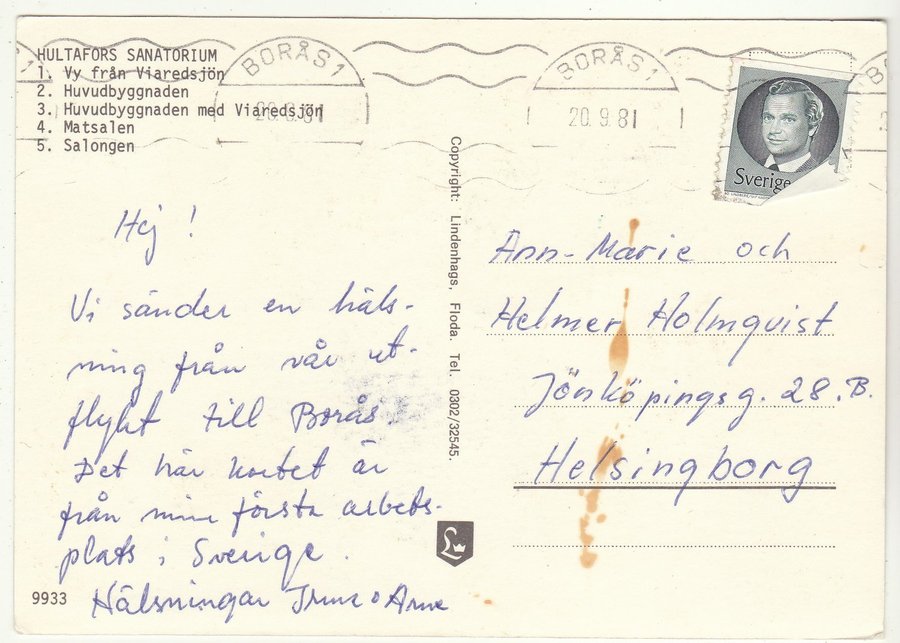 HULTAFORS SANATORIUM
1. Vy från Viaredsjön
2. Huvudbyggnaden
3. Huvudbyggnaden med Viaredsjön
4. Matsalen
5. Salongen
BORÅS 1
20.9.81
BORÅS 1
20.9.81
B
Sverige
Hej !
Vi sänder en häls-
ning från vår ut-
flykt till Borås.
Det här kortet är
från min första arbets-
plats i Sverige.
Hälsningar Irma o Arne
9933
Copyright: Lindenhags, Floda. Tel. 0302/32545.
L
Ann-Marie och
Helmer Holmqvist
Jönköpingsg. 28.B.
Helsingborg